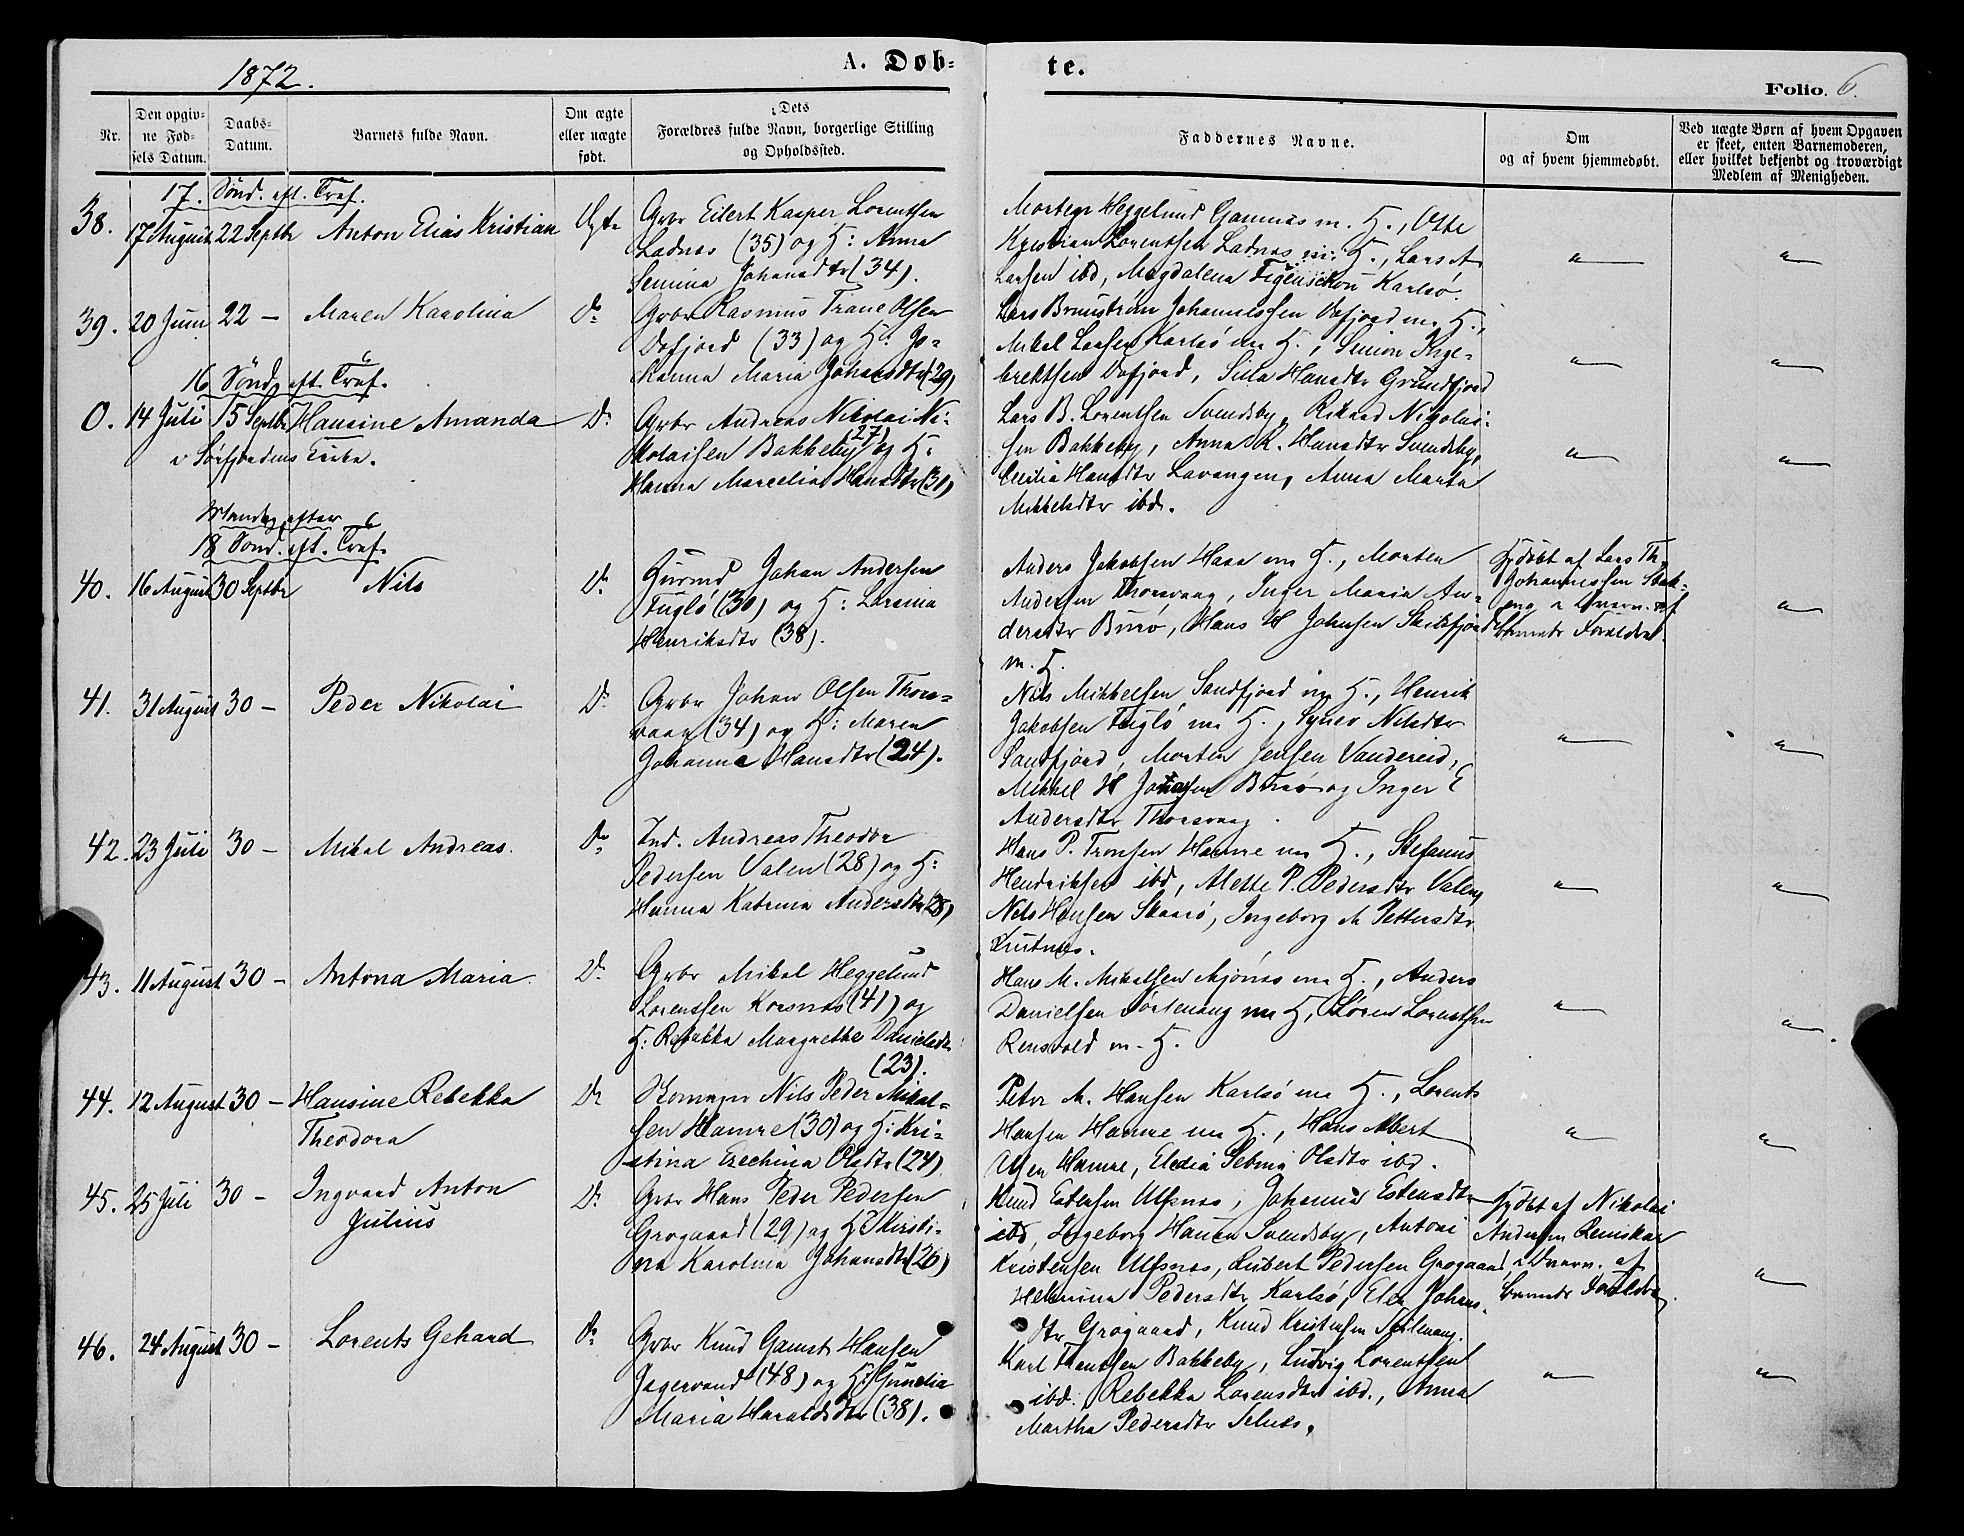 1872.
A. Døb-
te.
Folio. 6.
Nr.
Den opgiv-
ne Fød-
sels Datum.
Daabs-
Datum.
Barnets fulde Navn.
Om ægte
eller uægte
født.
Dets
Forældres fulde Navn, borgerlige Stilling
og Opholdssted.
Faddernes Navne.
Om
og af hvem hjemmedøbt.
Ved uægte Børn af hvem Opgaven
er skeet, enten Barnemoderen,
eller hvilket bekjendt og troværdigt
Medlem af Menigheden.
17. Sönd. eft. Tref.
38. 17 August 22 Septbr Anton Elias Kristian Ægte
Gbr Eilert Kasper Lorentsen
Ladnæs (35) og H: Anna
Semina Johansdtr (34).
Morten Heggelund Gamnæs m. H., Otte
Kristian Lorentsen Ladnæs m. H., Lars A
Larsen ibd, Magdalena Figenschou Karlsö.
39. 20 Juni 22 — Maren Karolina Do
Gbr Rasmus Trane Olsen
Dafjord (33) og H: Jo-
hanna Maria Johansdtr (29)
Lars Brunström Johannessen Dafjord m H.,
Mikal Larsen Karlsö m H., Simon Inge-
brektsen Dafjord, Sina Hansdtr Grundfjord
16 Sönd. eft. Tref.
0. 14 Juli 15 Septbr Hansine Amanda Do
i Sörfjordens Kirke.
Gbr Andreas Nikolai Ni-
kolaisen Bakkeby (27) og H:
Hanna Marcelia Hansdtr (31)
Lars B. Lorentsen Svendsby, Rikard Nikolai-
sen Bakkeby, Anna K. Hansdtr Svendsby,
Cecilia Hansdtr Lavangen, Anna Marta
Mikkelsdtr ibd.
Mandag efter
18 Sönd. eft. Tref.
40. 16 August 30 Septbr Nils Do
Johan Andersen
Fuglö (30) og H: Lorsina
Henriksdtr (38).
Anders Jakobsen Haan m H., Morten
Andersen Thorsvaag, Inger Maria An-
dersdtr Burö, Hans H Johnsen Skibsfjord
m. H.
Hjdöbt af Lars Th.
Johannessen
af
Barnets Forældre.
41. 31 August 30 — Peder Nikolai Do
Gbr Johan Olsen Thors-
vaag (34) og H: Maren
Johanna Hansdtr (24).
Nils Mikkelsen Sandfjord m H., Henrik
Jakobsen Fuglö m H., Synev Nilsdtr
Sandfjord, Morten Jensen Vandereid,
Mikkel H Johnsen Burö og Inger E
Andersdtr Thorsvaag.
42. 23 Juli 30 — Mikal Andreas. Do
Ind. Andreas Theodor
Pedersen Valen (28) og H:
Hanna Katrina Andersdtr (28)
Hans P. Tronsen Hamre m H., Stefanus
Hendriksen ibd, Mette P. Pedersdtr Valen,
Nils Hansen Skaarö, Ingeborg M Pettersdtr

43. 11 August 30 — Antona Maria. Do
Gbr Mikal Heggelund
Lorentsen Korsnæs (41) og
H: Rebekka Margrethe Danielsdtr
(23).
Hans M. Mikalsen Mjönæs m H., Anders
Danielsen m H, Sören Lorentsen
Rensvold m. H.
44. 12 August 30 — Hansine Rebekka Do
Theodora
Nils Peder Mikal-
sen Hamre (30) og H: Kri-
stina Olsdtr (24)
Peter M. Hansen Karlsö m H., Lorents
Hansen Hamre m H., Hans Albert
Olsen Hamre, Olsdtr ibd.
45. 25 Juli 30 — Ingvard Anton Do
Julius
Gbr Hans Peder Pedersen
Grogaard (29) og H: Kirsti-
na Karolina Johansdtr (26)
Knud Estensen Ulfsnæs, Johanna Estensdtr
ibd, Ingeborg Hansen Svendsby, Antoni
Kristensen Ulfsnæs, Lubert Pedersen Grogaard,
Pedersdtr Karlsö, Elen Johans-
dtr Grogaard, Knud Kristensen
Hjdöbt af Nikolai
Andersen Reinskar
af
Barnets Forældre.
46. 24 August 30 — Lorents Gehard Do
Gbr Knud Gamst Hansen
Jægervand (48) og H: Gunelia
Maria Haraldsdtr (38).
Karl Frantsen Bakkeby, Ludvig Lorentsen
ibd. Rebekka Lorensdtr ibd., Anna
Martha Pedersdtr